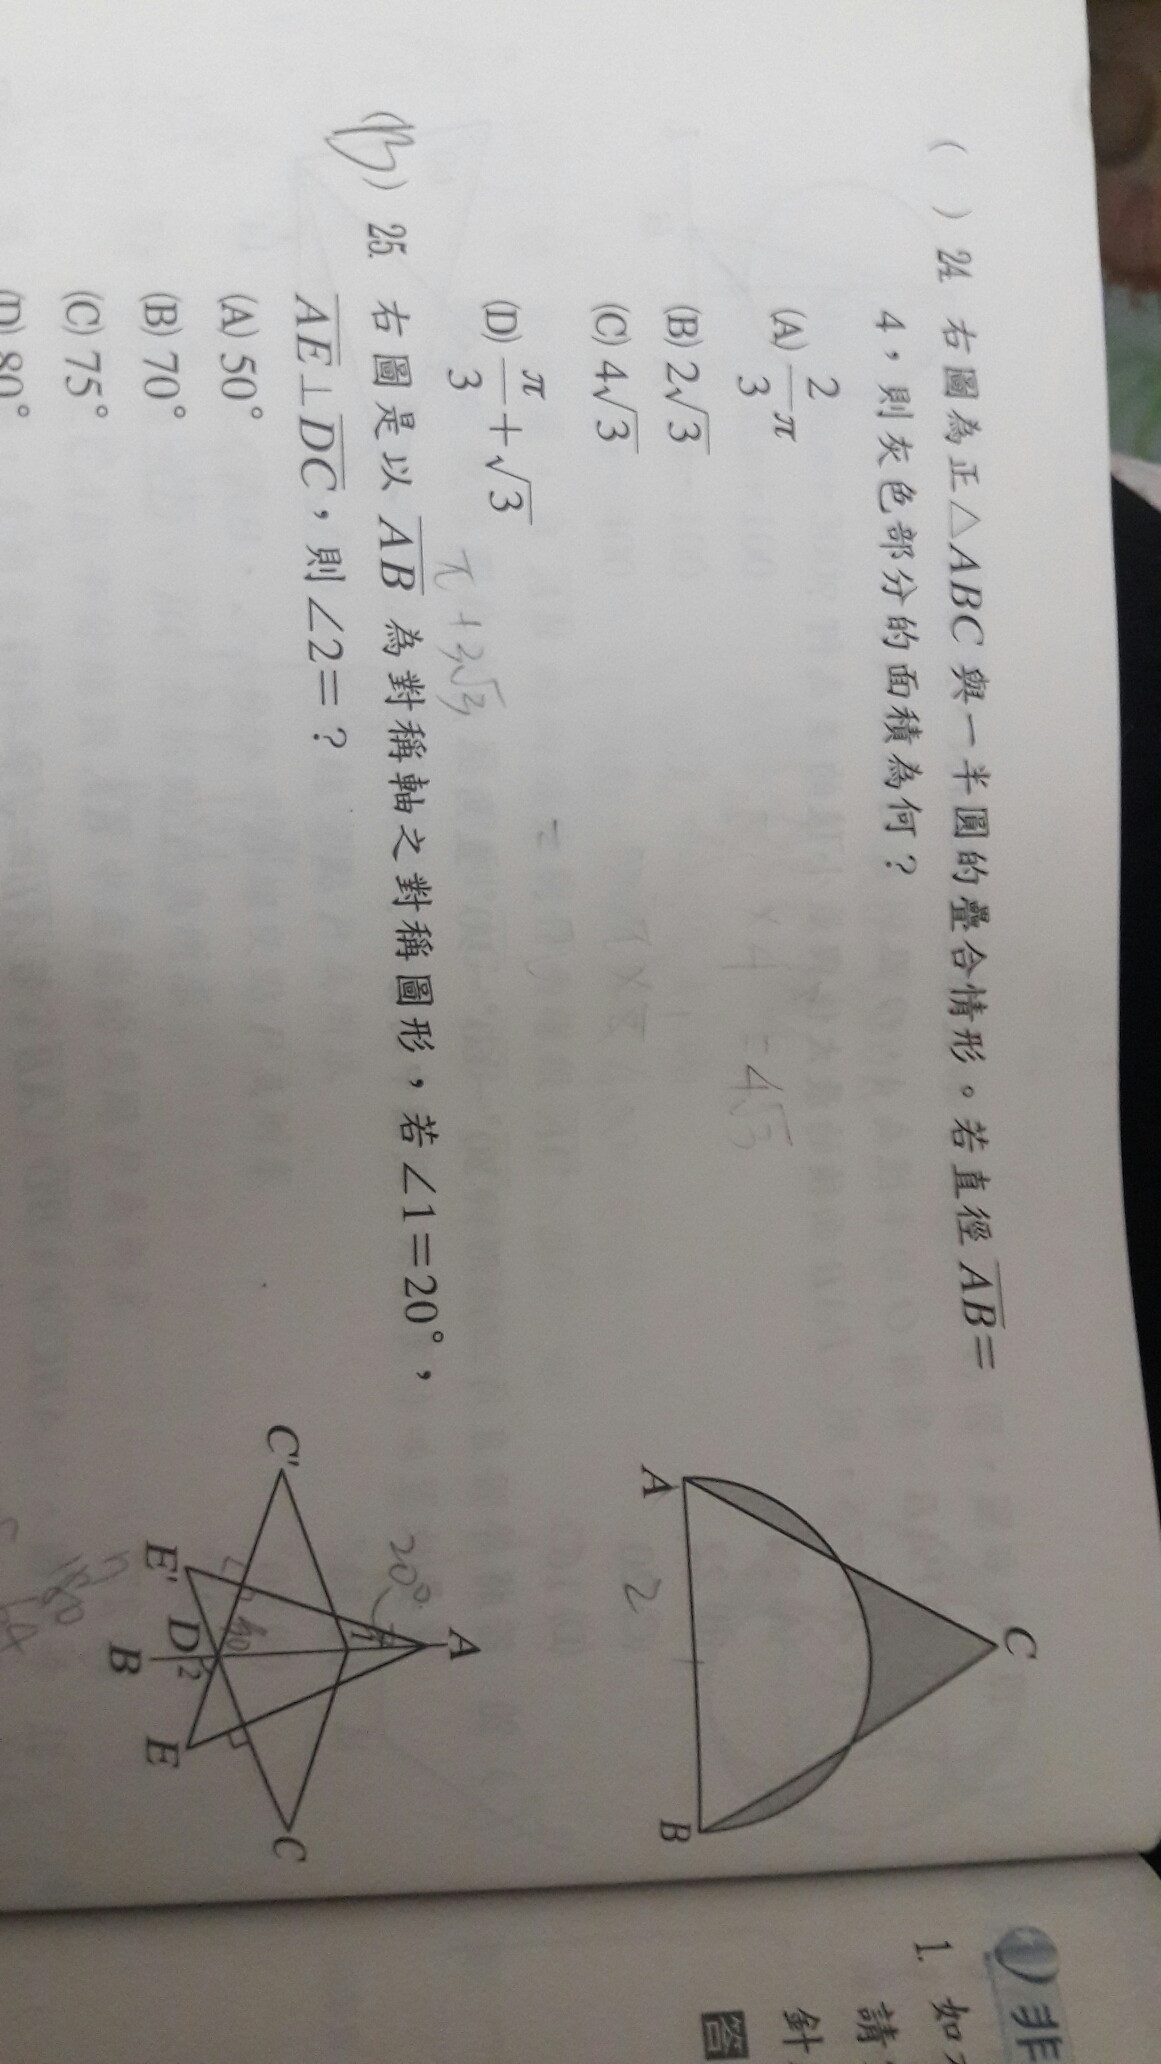 ( ) 24. 右圖為正△ABC 與一半圓的疊合情形。若直徑 AB=
4,則灰色部分的面積為何?
(A) 2/3 π
(B) 2√3
(C) 4√3
(D) π/3 + √3
C
A
B
×4 = 4√3
(B) 25. 右圖是以 AB 為對稱軸之對稱圖形,若∠1=20°,
AE⊥DC,則∠2=?
(A) 50°
(B) 70°
(C) 75°
(D) 80°
A
20°
1
C'
C
E'
D
2
E
B
180
非
1. 如
請
針
答